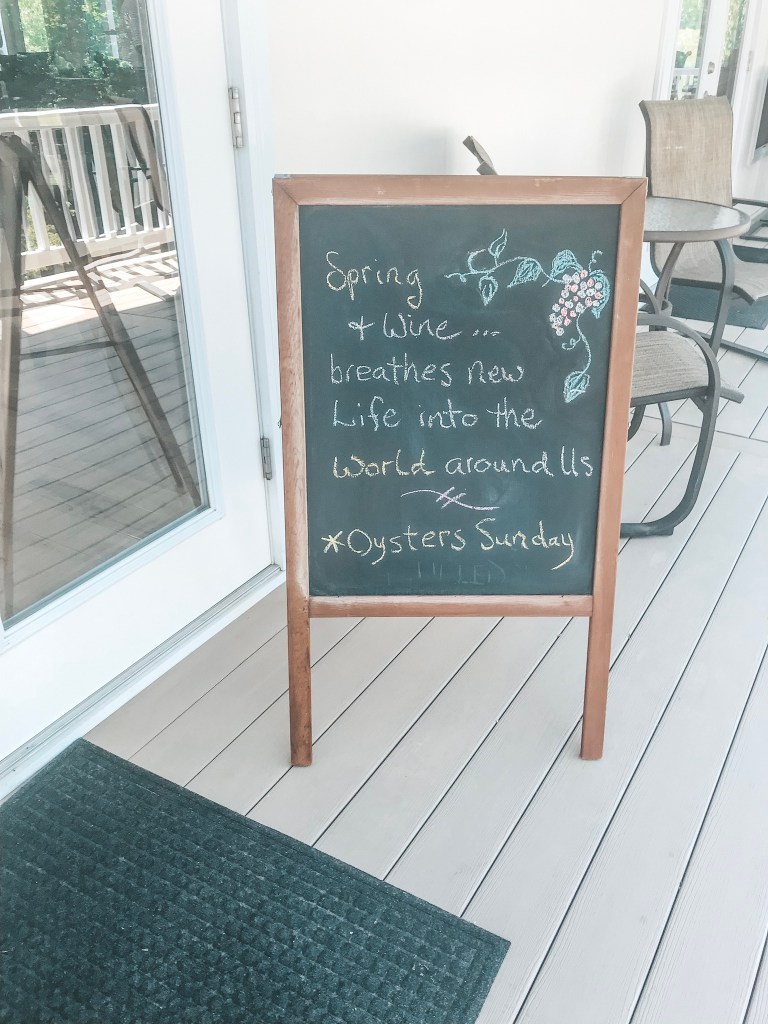 Spring
+ Wine ...
breathes new
Life into the
World around Us
*Oysters Sunday